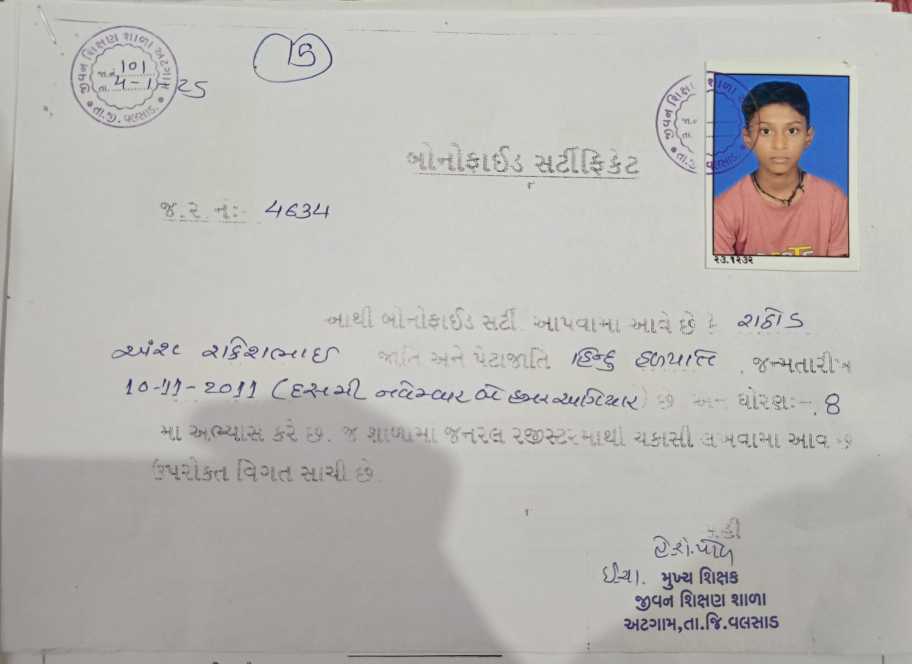 જીવન શિક્ષણ શાળા અટગામ
જા.નં. 101
તા. 4-1-25
તા.જી. વલસાડ.
15
જીવન શિક્ષણ શાળા
જા.નં
તા.
બોનોફાઈડ સર્ટીફિકેટ
જ.ર.નં:- 4634
૨૩.૧૨૩૨
આથી બોનોફાઈડ સર્ટી આપવામા આવે છે કે રાઠોડ
અંશ રાકેશભાઈ જાતિ અને પેટાજાતિ હિન્દુ હળપતિ . જન્મતારીખ
10-11-2011 (દસમી નવેમ્બર બે હજાર અગિયાર) છે અને ધોરણ:- 8
મા અભ્યાસ કરે છે. જે શાળામા જનરલ રજીસ્ટરમાથી ચકાસી લખવામા આવે છે
ઉપરોક્ત વિગત સાચી છે.
સહી
ઈચા. મુખ્ય શિક્ષક
જીવન શિક્ષણ શાળા
અટગામ,તા.જિ.વલસાડ